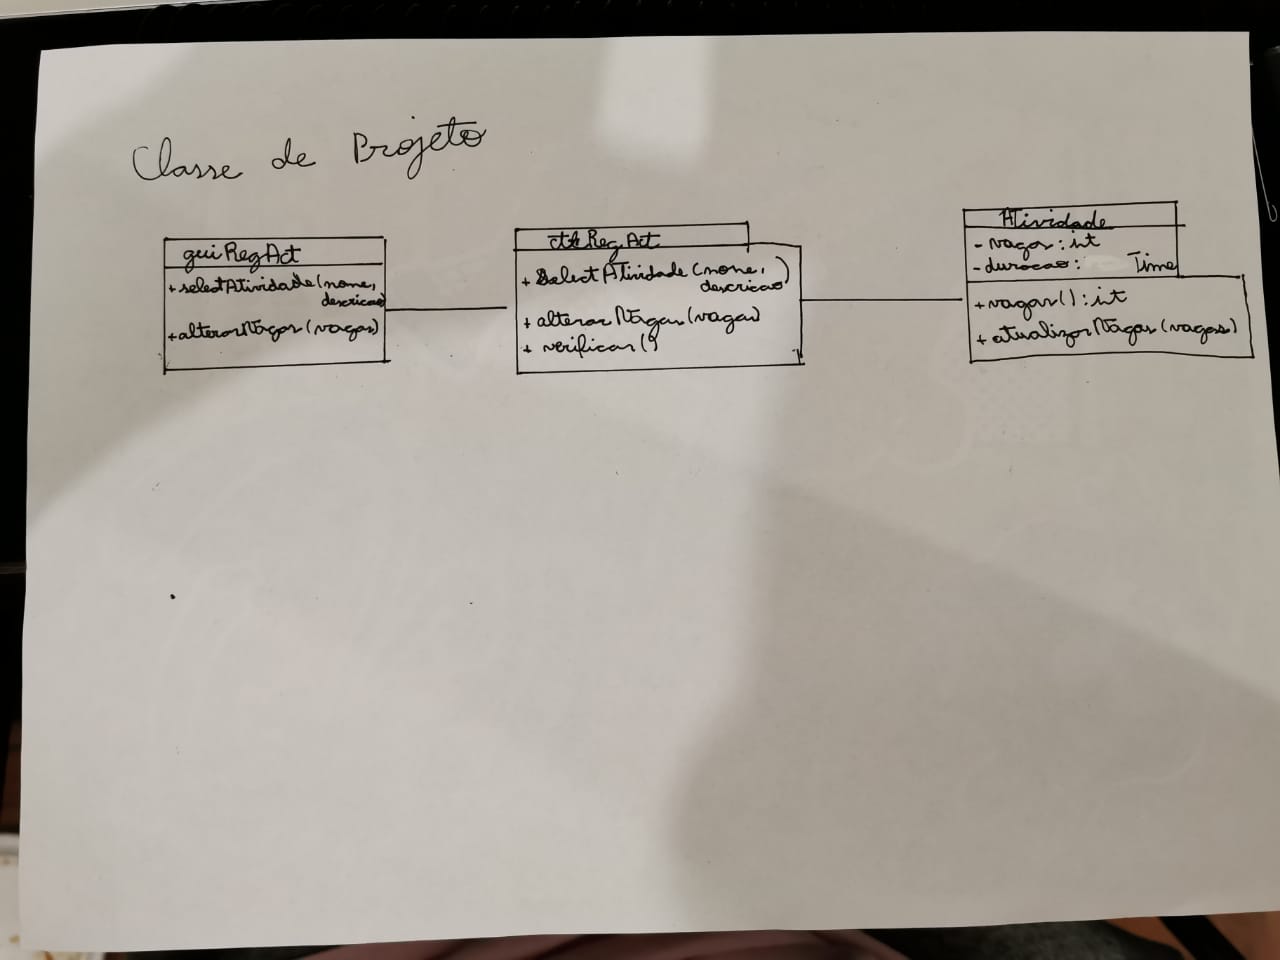 Classe de Projeto
guiRegAct
+ selectAtividade(nome,
descricao)
+ alterarVagas(vagas)
ctrRegAct
+ SelectAtividade(nome,
descricao)
+ alterarVagas(vagas)
+ verificar()
Atividade
- vagas: int
- duracao: Time
+ vagas(): int
+ atualizarVagas(vagas)